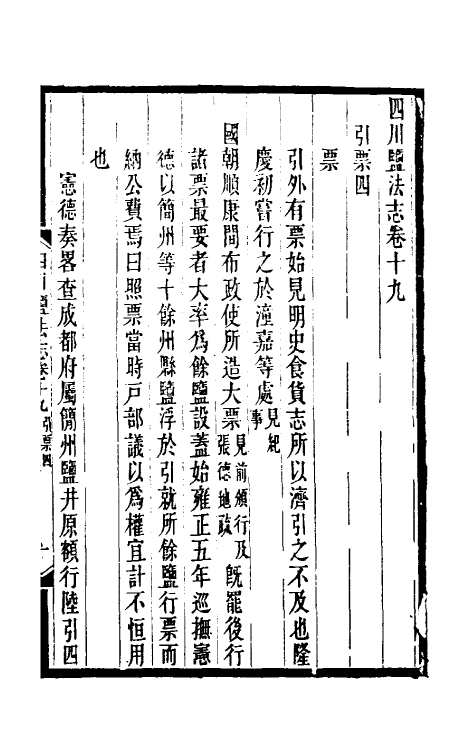 四川鹽法志卷十九
引票四
票
引外有票始見明史食貨志所以濟引之不及也隆
慶初嘗行之於潼嘉等處見紀事
國朝順康間布政使所造大票見前頒行及張德地疏既罷後行
諸票最要者大率爲餘鹽設蓋始雍正五年巡撫憲
德以簡州等十餘州縣鹽浮於引就所餘鹽行票而
納公費焉曰照票當時戶部議以爲權宜計不恒用
也
憲德奏畧查成都府屬簡州鹽井原額行陸引四
四川鹽法志卷十九 引票四 一